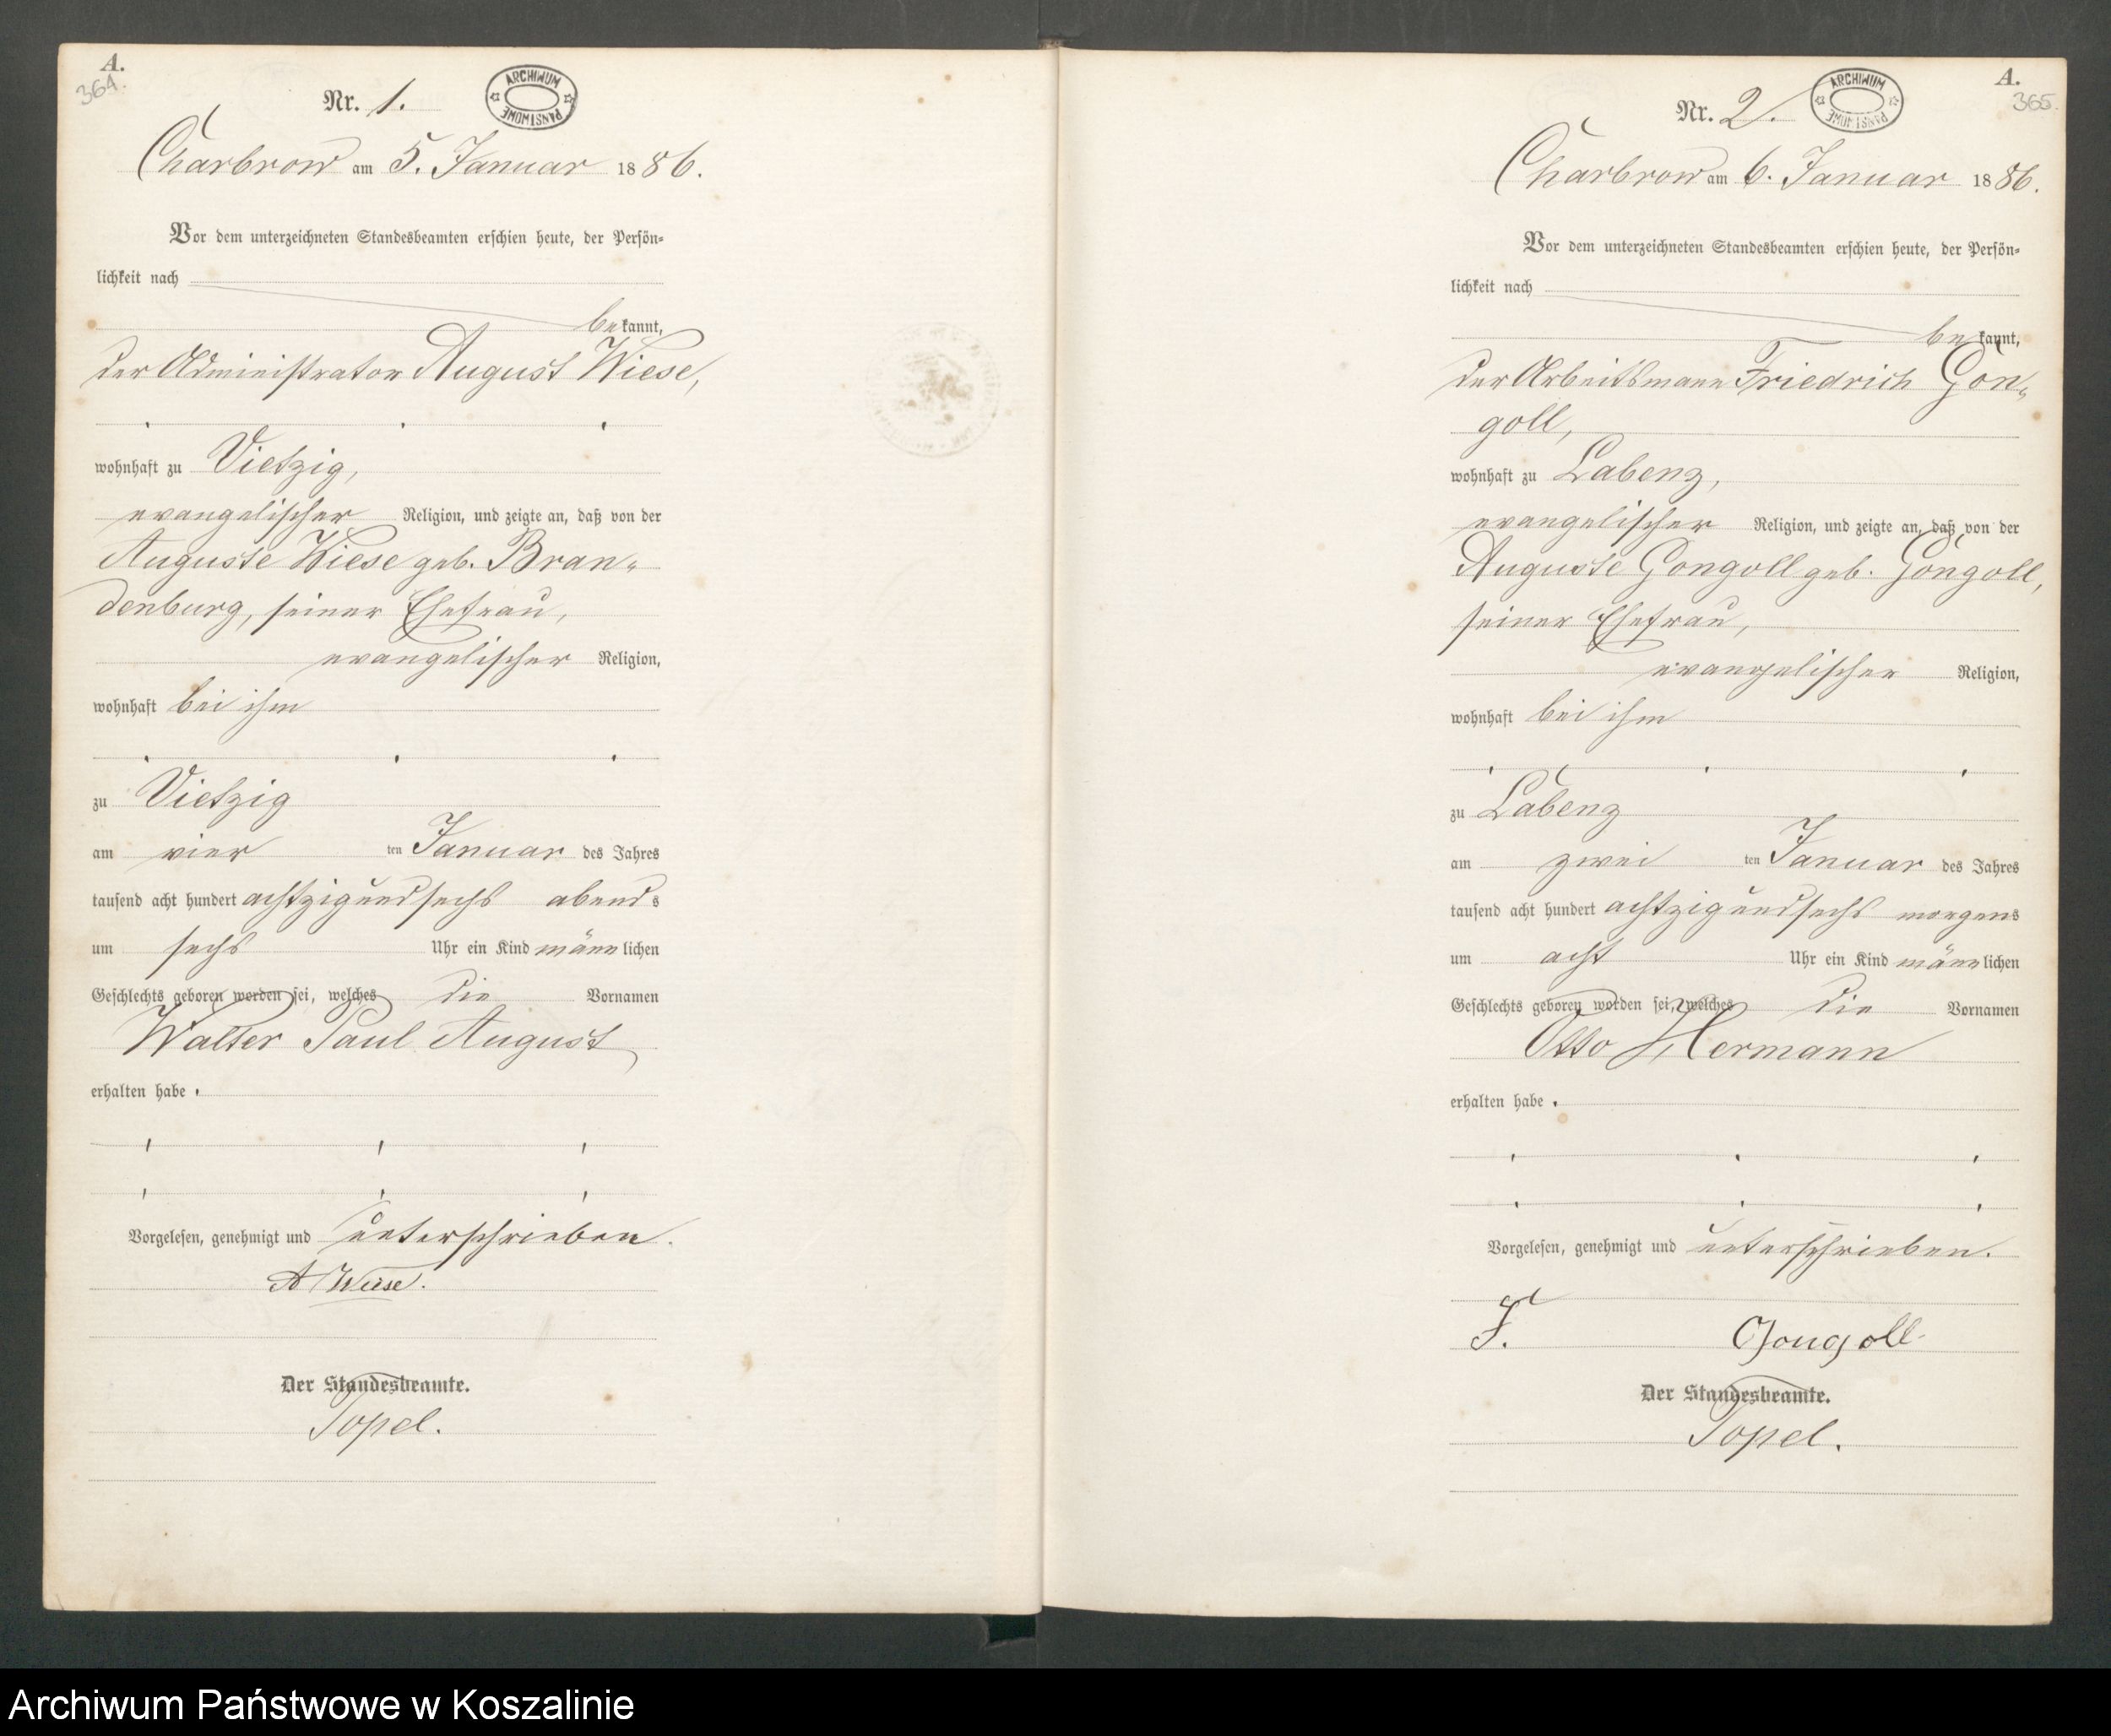 A.
364.
Nr. 1.
ARCHIWUM PAŃSTWOWE
Charbrow am 5. Januar 1886.
Vor dem unterzeichneten Standesbeamten erschien heute, der Persön-
lichkeit nach
bekannt,
der Administrator August Wiese,
wohnhaft zu Vietzig,
evangelischer Religion, und zeigte an, daß von der
Auguste Wiese geb. Bran-
denburg, seiner Ehefrau,
evangelischer Religion,
wohnhaft bei ihm
zu Vietzig
am vier ten Januar des Jahres
tausend acht hundert achtzig und sechs abends
um sechs Uhr ein Kind männlichen
Geschlechts geboren worden sei, welches die Vornamen
Walter Paul August
erhalten habe.
Vorgelesen, genehmigt und unterschrieben.
A Wiese.
Der Standesbeamte.
Topel.
A.
365.
Nr. 2.
ARCHIWUM PAŃSTWOWE
Charbrow am 6. Januar 1886.
Vor dem unterzeichneten Standesbeamten erschien heute, der Persön-
lichkeit nach
bekannt,
der Arbeitsmann Friedrich Gon-
goll,
wohnhaft zu Labenz,
evangelischer Religion, und zeigte an, daß von der
Auguste Gongoll geb. Gongoll,
seiner Ehefrau,
evangelischer Religion,
wohnhaft bei ihm
zu Labenz
am zwei ten Januar des Jahres
tausend acht hundert achtzig und sechs morgens
um acht Uhr ein Kind männlichen
Geschlechts geboren worden sei, welches die Vornamen
Otto Hermann
erhalten habe.
Vorgelesen, genehmigt und unterschrieben.
F. Gongoll
Der Standesbeamte.
Topel.
Archiwum Państwowe w Koszalinie